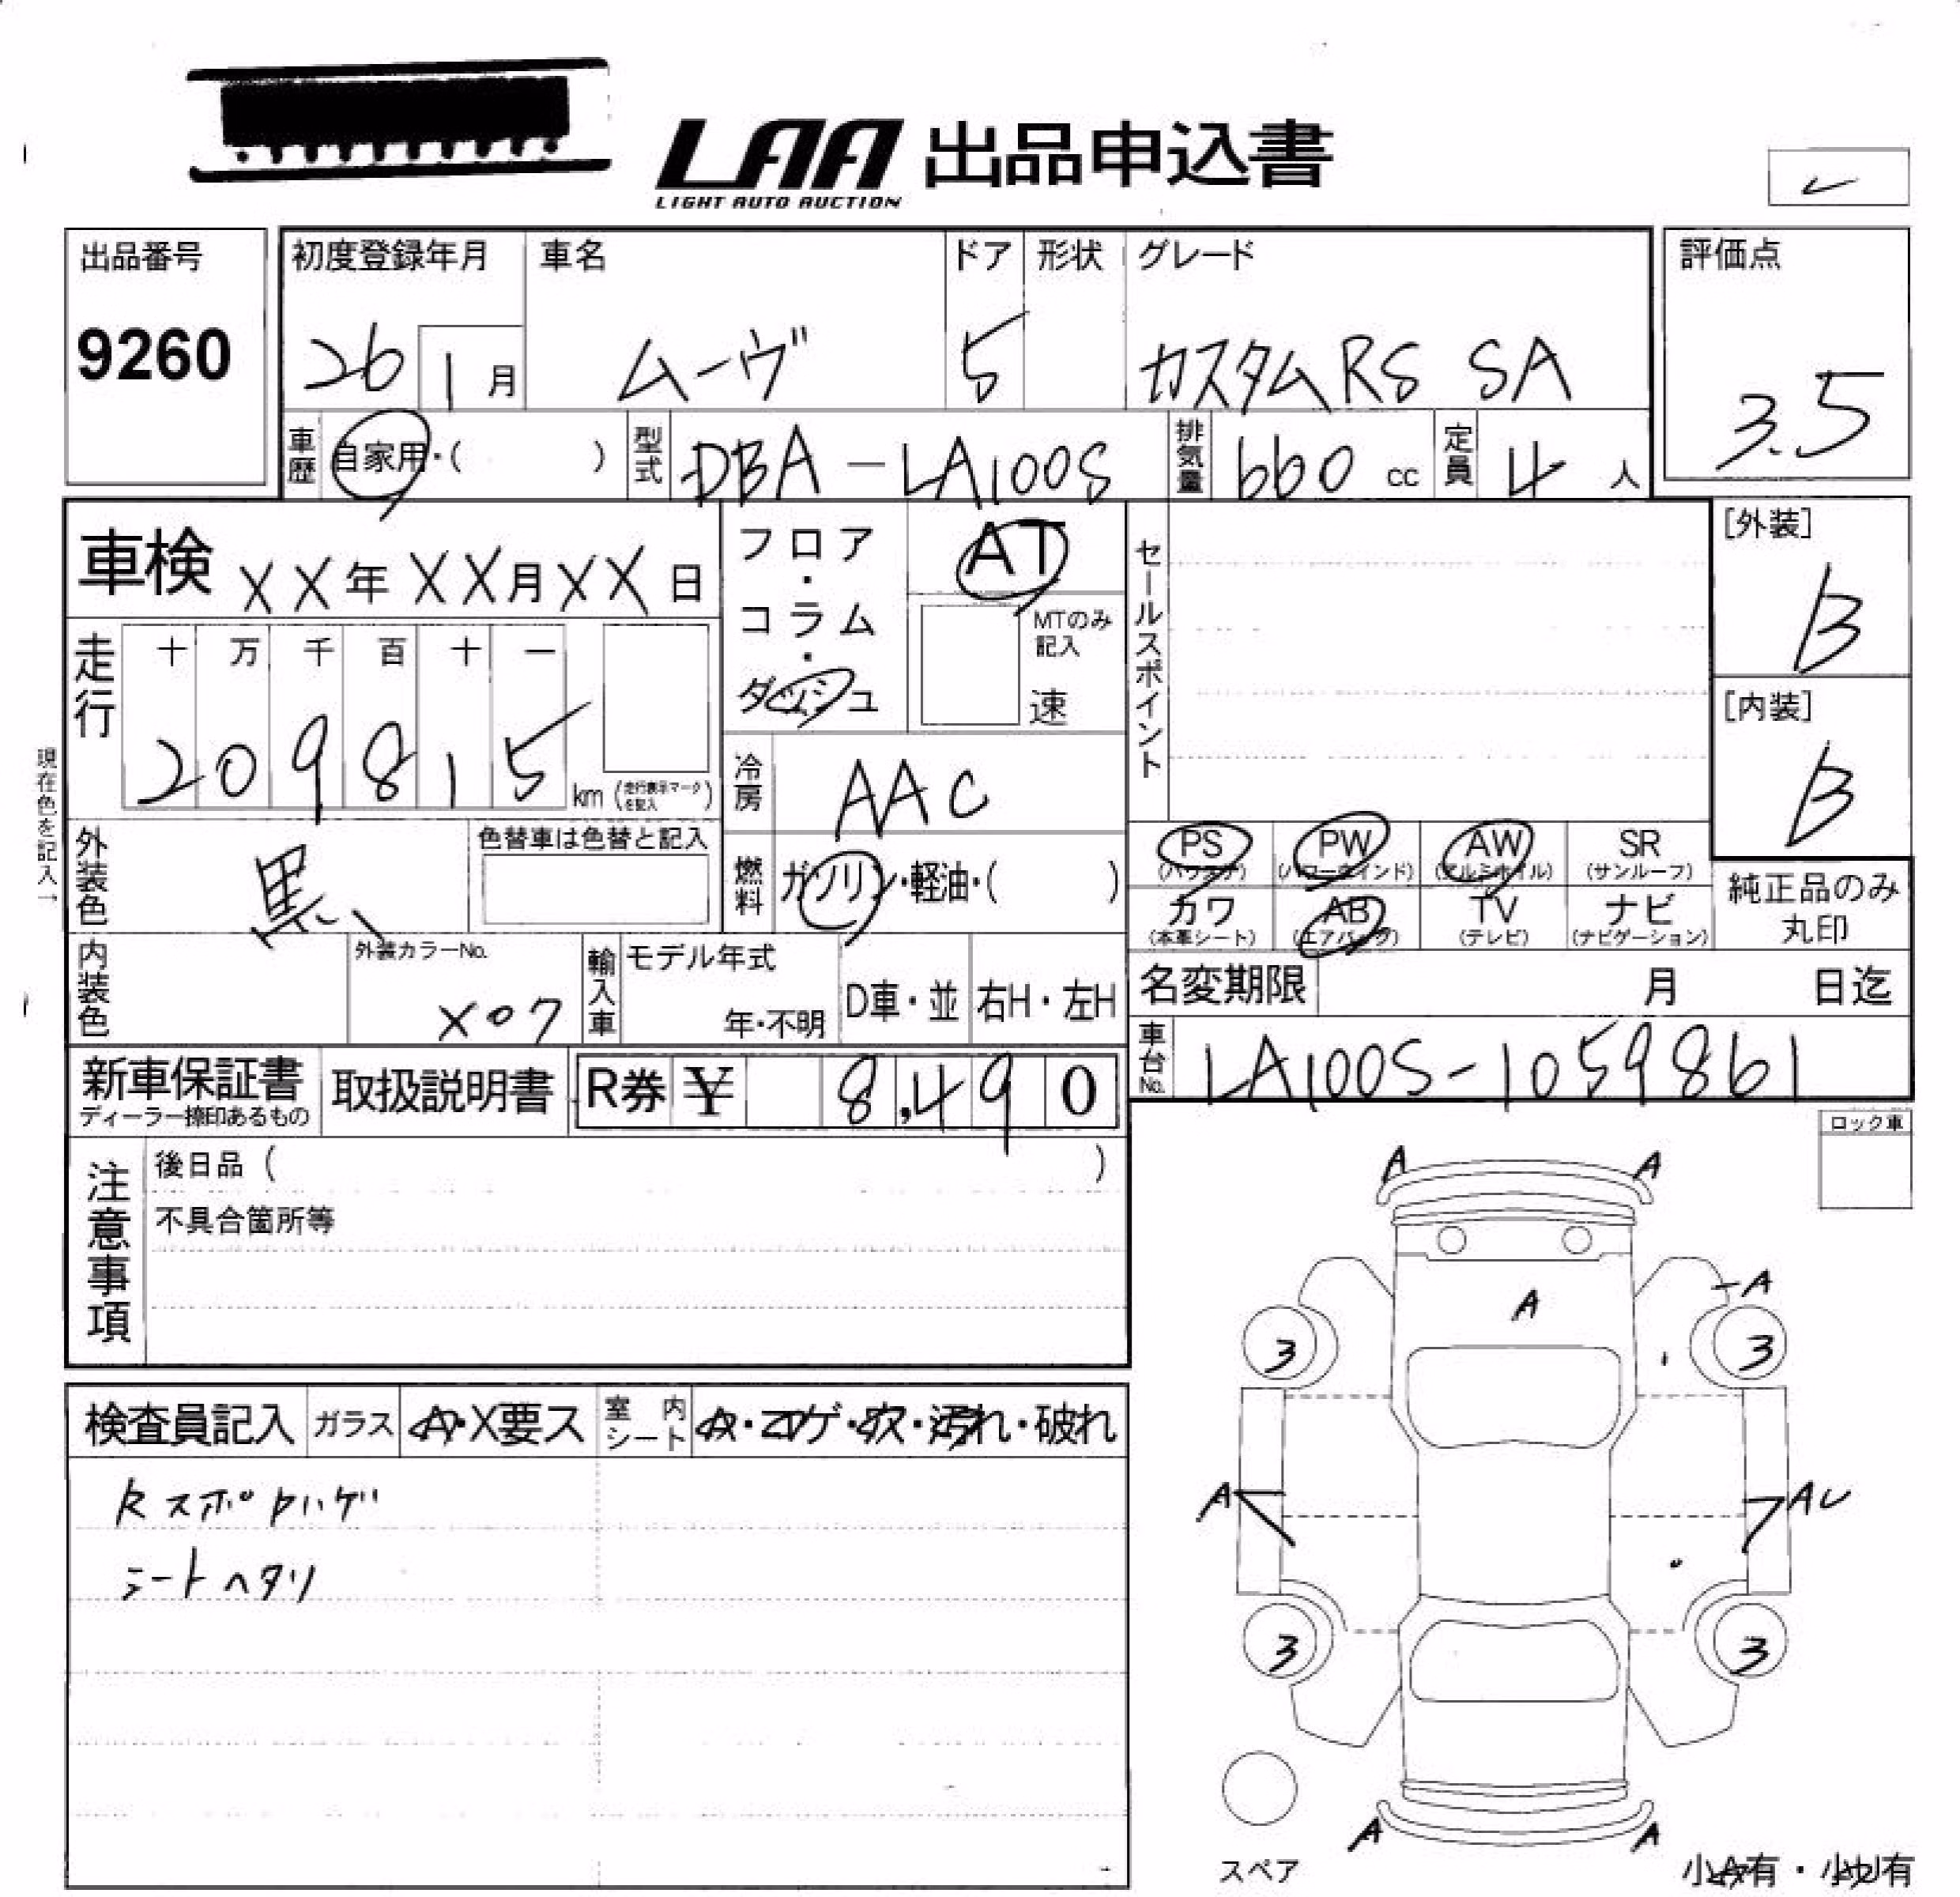 LAA 出品申込書
LIGHT AUTO AUCTION
出品番号
9260
初度登録年月
26 1月
車名
ムーヴ
ドア
5
形状
グレード
カスタムRS SA
評価点
3.5
車歴 自家用・( )
型式 DBA-LA100S
排気量 660 cc
定員 4 人
車検 XX年XX月XX日
フロア・コラム・ダッシュ
AT
MTのみ記入
速
セールスポイント
[外装]
B
[内装]
B
走行
十 万 千 百 十 一
2 0 9 8 1 5 km (走行表示マークを記入)
現在色を記入→
冷房 AAC
外装色 黒
色替車は色替と記入
燃料 ガソリン・軽油・( )
PS (パワステ) PW (パワーウィンド) AW (アルミホイル) SR (サンルーフ)
カワ (本革シート) AB (エアバック) TV (テレビ) ナビ (ナビゲーション)
純正品のみ丸印
内装色
外装カラーNo.
X07
輸入車 モデル年式
年・不明 D車・並 右H・左H
名変期限 月 日迄
車台No. LA100S-1059861
新車保証書
ディーラー捺印あるもの
取扱説明書
R券 ¥ 8,490
ロック車
注意事項
後日品 ( )
不具合箇所等
A A
A A
3 3
検査員記入 ガラス A・X要ス 室内シート A・コゲ・穴・汚れ・破れ
Rスポ ハゲ
シートヘタリ
A AU
3 3
A A
スペア
小A有・小U有